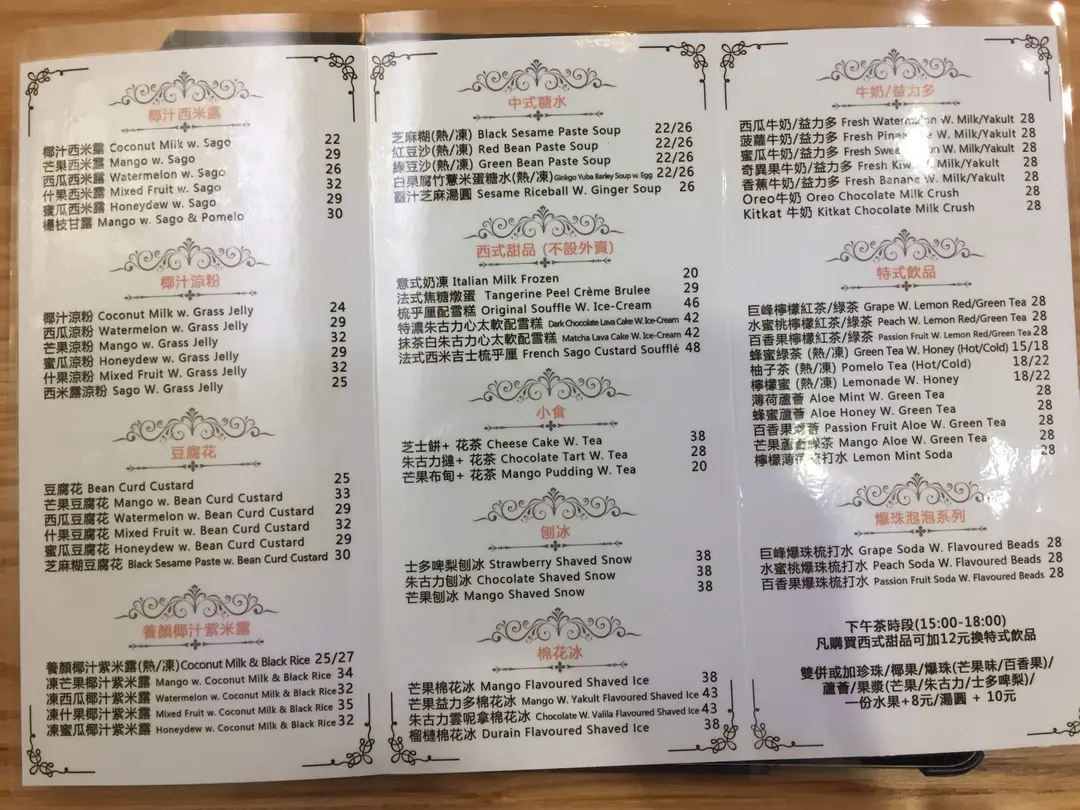 椰汁西米露
椰汁西米露 Coconut Milk w. Sago 22
芒果西米露 Mango w. Sago 29
西瓜西米露 Watermelon w. Sago 26
什果西米露 Mixed Fruit w. Sago 32
蜜瓜西米露 Honeydew w. Sago 29
楊枝甘露 Mango w. Sago & Pomelo 30
椰汁涼粉
椰汁涼粉 Coconut Milk w. Grass Jelly 24
西瓜涼粉 Watermelon w. Grass Jelly 29
芒果涼粉 Mango w. Grass Jelly 32
蜜瓜涼粉 Honeydew w. Grass Jelly 29
什果涼粉 Mixed Fruit W. Grass Jelly 32
西米露涼粉 Sago W. Grass Jelly 25
豆腐花
豆腐花 Bean Curd Custard 25
芒果豆腐花 Mango w. Bean Curd Custard 33
西瓜豆腐花 Watermelon w. Bean Curd Custard 29
什果豆腐花 Mixed Fruit w. Bean Curd Custard 32
蜜瓜豆腐花 Honeydew w. Bean Curd Custard 29
芝麻糊豆腐花 Black Sesame Paste w. Bean Curd Custard 30
養顏椰汁紫米露
養顏椰汁紫米露(熱/凍)Coconut Milk & Black Rice 25/27
凍芒果椰汁紫米露 Mango w. Coconut Milk & Black Rice 34
凍西瓜椰汁紫米露 Watermelon w. Coconut Milk & Black Rice 32
凍什果椰汁紫米露 Mixed Fruit w. Coconut Milk & Black Rice 35
凍蜜瓜椰汁紫米露 Honeydew w. Coconut Milk & Black Rice 32
中式糖水
芝麻糊(熱/凍) Black Sesame Paste Soup 22/26
紅豆沙(熱/凍) Red Bean Paste Soup 22/26
綠豆沙(熱/凍) Green Bean Paste Soup 22/26
白果腐竹薏米蛋糖水(熱/凍) Ginkgo Yuba Barley Soup w. Egg 22/26
薑汁芝麻湯圓 Sesame Riceball W. Ginger Soup 26
西式甜品 (不設外賣)
意式奶凍 Italian Milk Frozen 20
法式焦糖燉蛋 Tangerine Peel Crème Brulee 29
梳乎厘配雪糕 Original Souffle W. Ice-Cream 46
特濃朱古力心太軟配雪糕 Dark Chocolate Lava Cake W. Ice-Cream 42
抹茶白朱古力心太軟配雪糕 Matcha Lava Cake W. Ice-Cream 42
法式西米吉士梳乎厘 French Sago Custard Soufflé 48
小食
芝士餅+ 花茶 Cheese Cake W. Tea 38
朱古力撻+ 花茶 Chocolate Tart W. Tea 28
芒果布甸+ 花茶 Mango Pudding W. Tea 20
刨冰
士多啤梨刨冰 Strawberry Shaved Snow 38
朱古力刨冰 Chocolate Shaved Snow 38
芒果刨冰 Mango Shaved Snow 38
棉花冰
芒果棉花冰 Mango Flavoured Shaved Ice 38
芒果益力多棉花冰 Mango W. Yakult Flavoured Shaved Ice 43
朱古力雲呢拿棉花冰 Chocolate W. Valila Flavoured Shaved Ice 43
榴槤棉花冰 Durain Flavoured Shaved Ice 38
牛奶/益力多
西瓜牛奶/益力多 Fresh Watermelon W. Milk/Yakult 28
菠蘿牛奶/益力多 Fresh W. Milk/Yakult 28
蜜瓜牛奶/益力多 Fresh W. Milk/Yakult 28
奇異果牛奶/益力多 Fresh W. Milk/Yakult 28
香蕉牛奶/益力多 Fresh Banana W. Milk/Yakult 28
Oreo牛奶 Oreo Chocolate Milk Crush 28
Kitkat 牛奶 Kitkat Chocolate Milk Crush 28
特式飲品
巨峰檸檬紅茶/綠茶 Grape W. Lemon Red/Green Tea 28
水蜜桃檸檬紅茶/綠茶 Peach W. Lemon Red/Green Tea 28
百香果檸檬紅茶/綠茶 Passion Fruit W. Lemon Red/Green Tea 28
蜂蜜綠茶 (熱/凍) Green Tea W. Honey (Hot/Cold) 15/18
柚子茶 (熱/凍) Pomelo Tea (Hot/Cold) 18/22
檸檬蜜 (熱/凍) Lemonade W. Honey 18/22
薄荷蘆薈 Aloe Mint W. Green Tea 28
蜂蜜蘆薈 Aloe Honey W. Green Tea 28
百香果蘆薈 Passion Fruit Aloe W. Green Tea 28
芒果蘆薈綠茶 Mango Aloe W. Green Tea 28
檸檬薄荷梳打水 Lemon Mint Soda 28
爆珠泡泡系列
巨峰爆珠梳打水 Grape Soda W. Flavoured Beads 28
水蜜桃爆珠梳打水 Peach Soda W. Flavoured Beads 28
百香果爆珠梳打水 Passion Fruit Soda W. Flavoured Beads 28
下午茶時段(15:00-18:00)
凡購買西式甜品可加12元換特式飲品
雙併或加珍珠/椰果/爆珠(芒果味/百香果)/
蘆薈/果漿(芒果/朱古力/士多啤梨)/
一份水果+8元/湯圓 + 10元